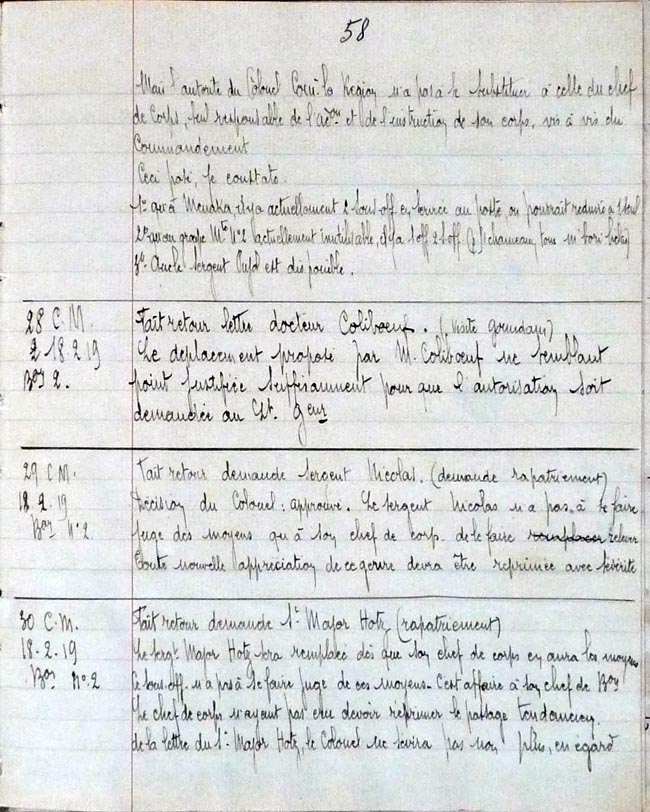 58
Mais l'autorité du Colonel Comt la Région n'a pas à se substituer à celle du chef
de Corps, seul responsable de l'adon et de l'instruction de son corps, vis à vis du
Commandement
Ceci posé, je constate.
1º qu'à Menaka, il y a actuellement 2 sous off. en service au poste, on pourrait réduire à 1 seul
2º qu'au groupe Mte Nº2 actuellement inutilisable, il y a 1 off 2 s off
3º Que le sergent est disponible.
28 C.M.
2 18.2.19
Bon 2.
Fait retour lettre docteur Coliboeuf. (visite goundam)
Le déplacement proposé par M. Coliboeuf ne semblant
point justifiée suffisamment pour que l'autorisation soit
demandée au Lt. Geur
29 C M.
18.2.19
Bon Nº2
Fait retour demande sergent Nicolas. (demande rapatriement)
Décision du Colonel: approuvé. Le sergent Nicolas n'a pas à se faire
juge des moyens qu'à son chef de corps de le faire remplacer relever
Toute nouvelle appréciation de ce genre devra être réprimée avec sévérité
30 C.M.
18.2.19
Bon Nº.2
Fait retour demande St Major Hotz (rapatriement)
Le sergt Major Hotz sera remplacé dès que son chef de corps en aura les moyens
Ce sous-off. n'a pas à se faire juge de ces moyens. C'est affaire à son chef de Bon
Le chef de corps n'ayant pas cru devoir réprimer le passage tendancieux
de la lettre du St Major Hotz, le Colonel ne sévira pas non plus, en égard